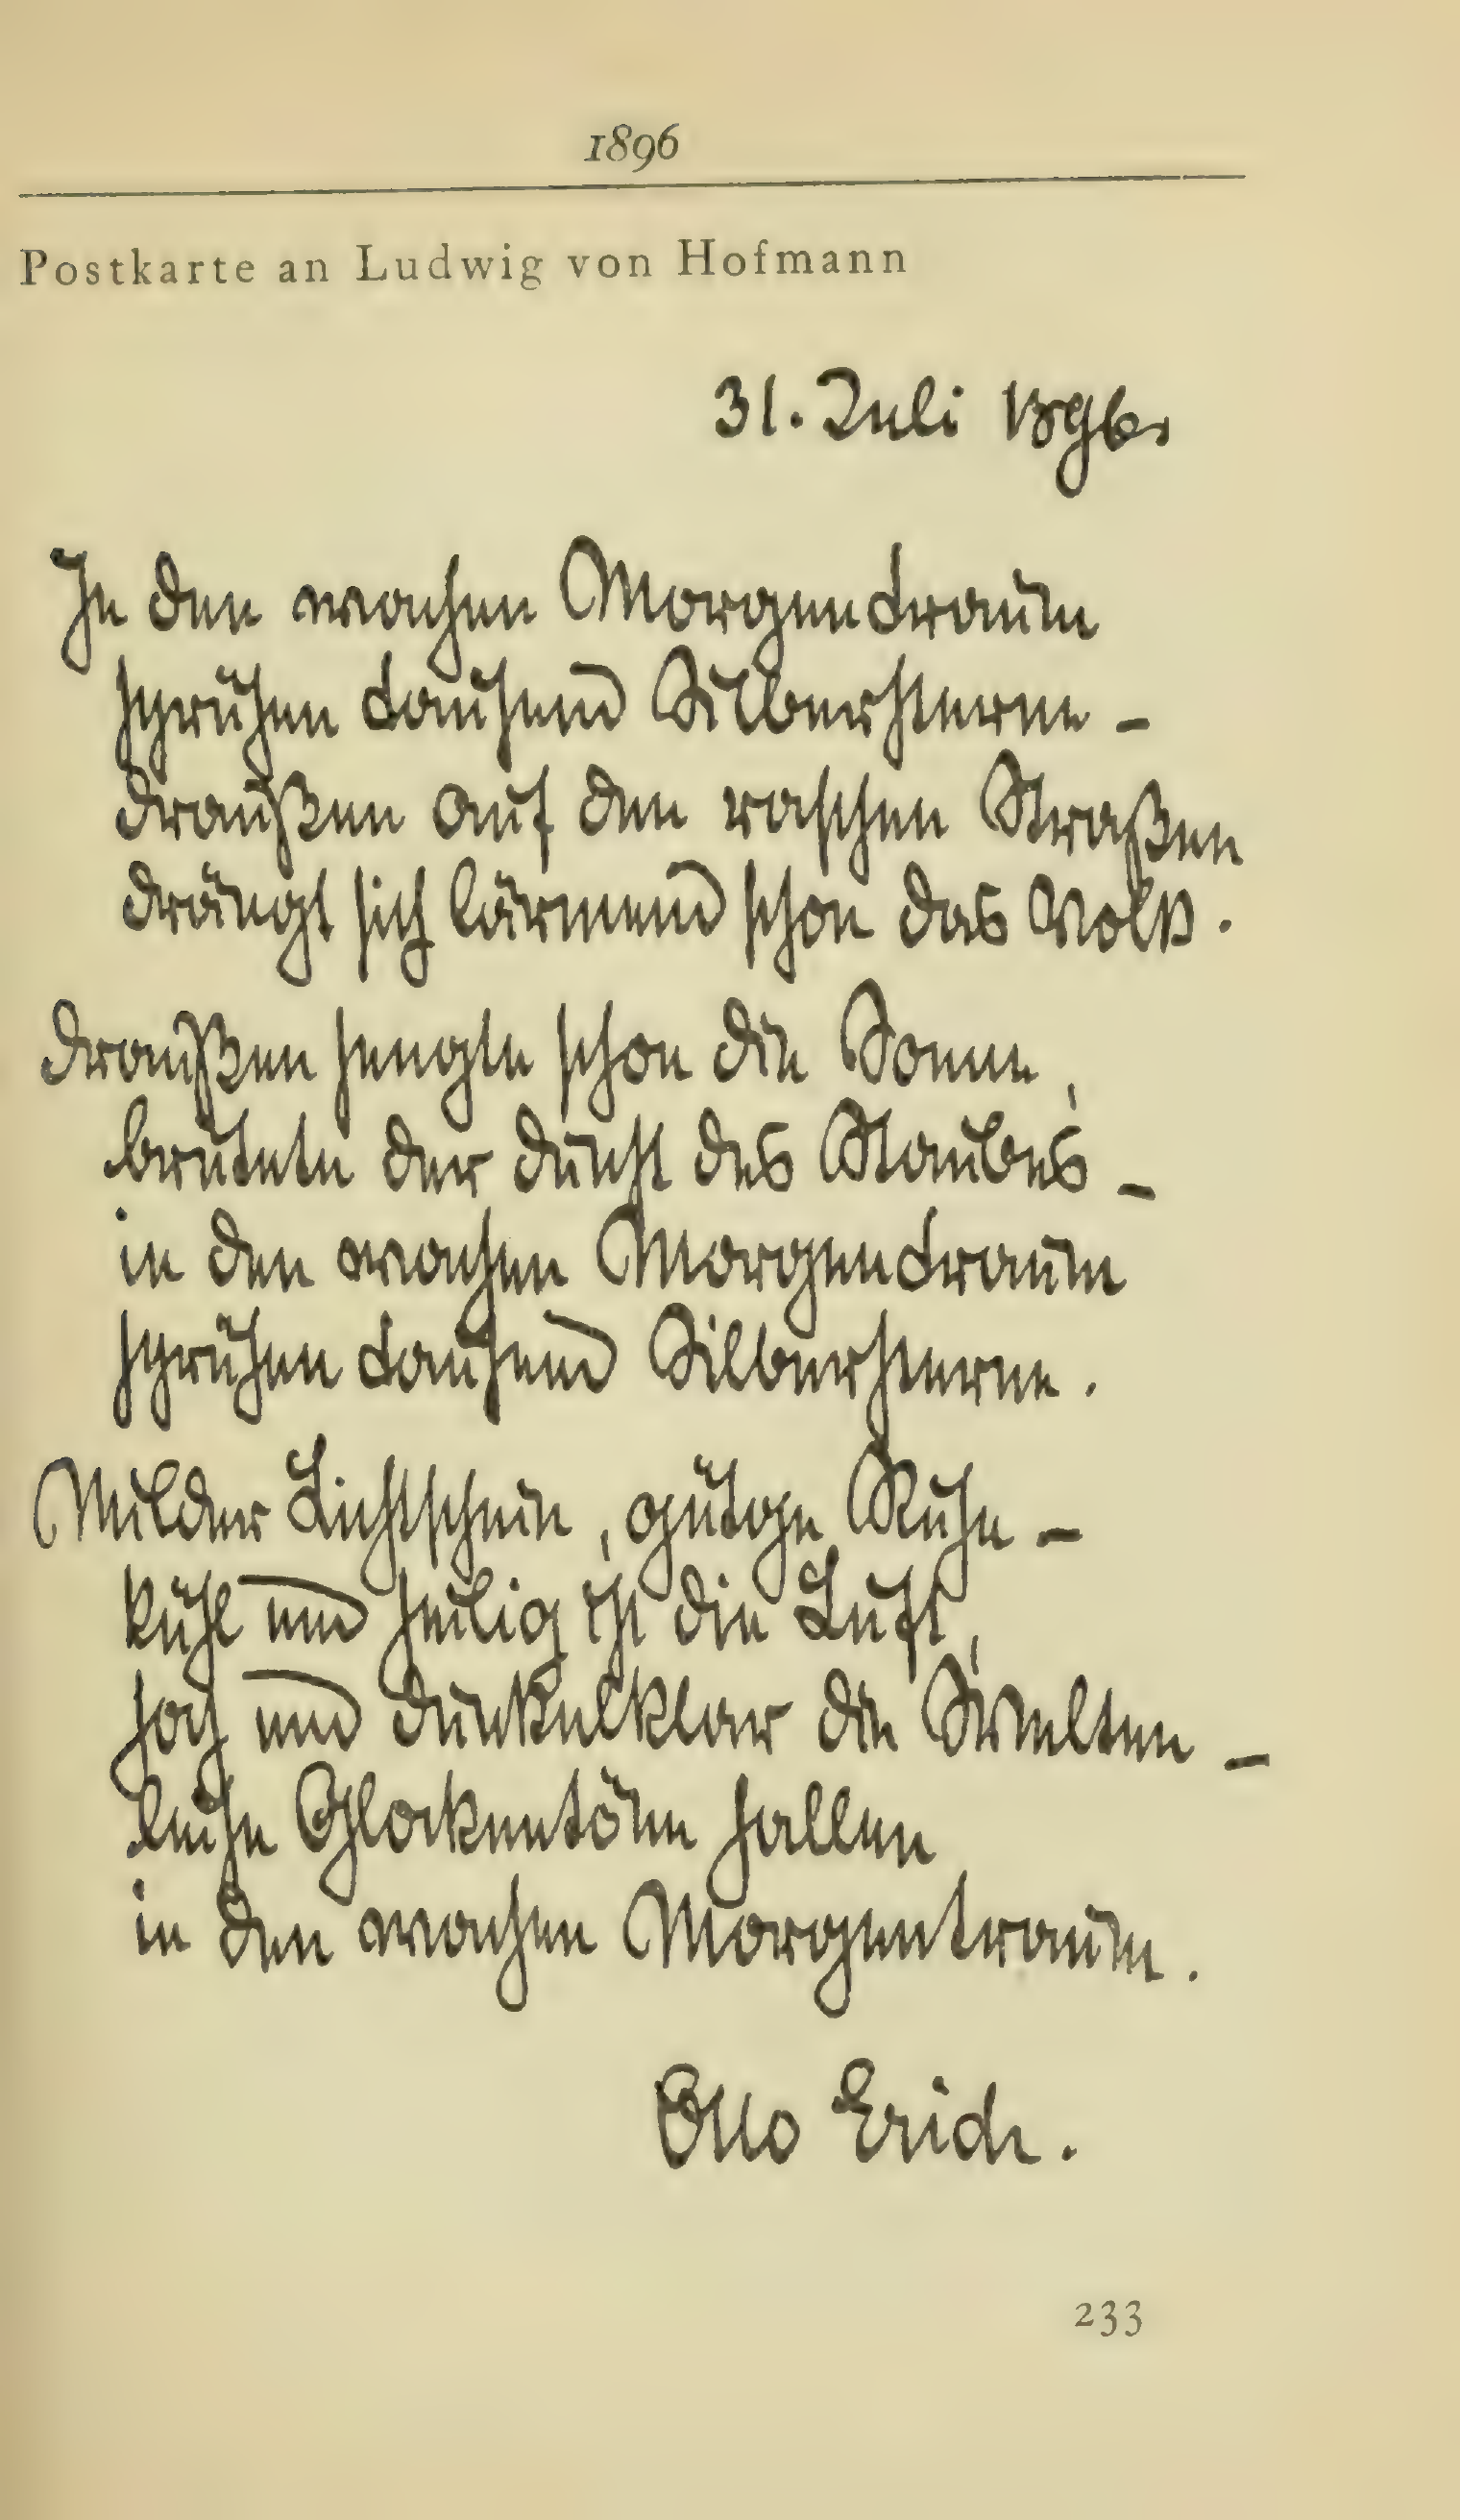 1896
Postkarte an Ludwig von Hofmann
31. Juli 1896.
In den wachen Morgentraum
sprühen tausend Silbersterne –
draußen auf den raschen Straßen
drängt sich lärmend schon das Volk.
Draußen sengte schon die Sonne,
brütete der Dunst des Staubes –
in den wachen Morgentraum
sprühen tausend Silbersterne.
Milder Lichtschein, gütge Ruhe –
kühl und heilig ist die Luft,
hoch und dunkelklar die –
leise Glockentöne hallen
in den wachen Morgentraum.
Otto Erich.
233